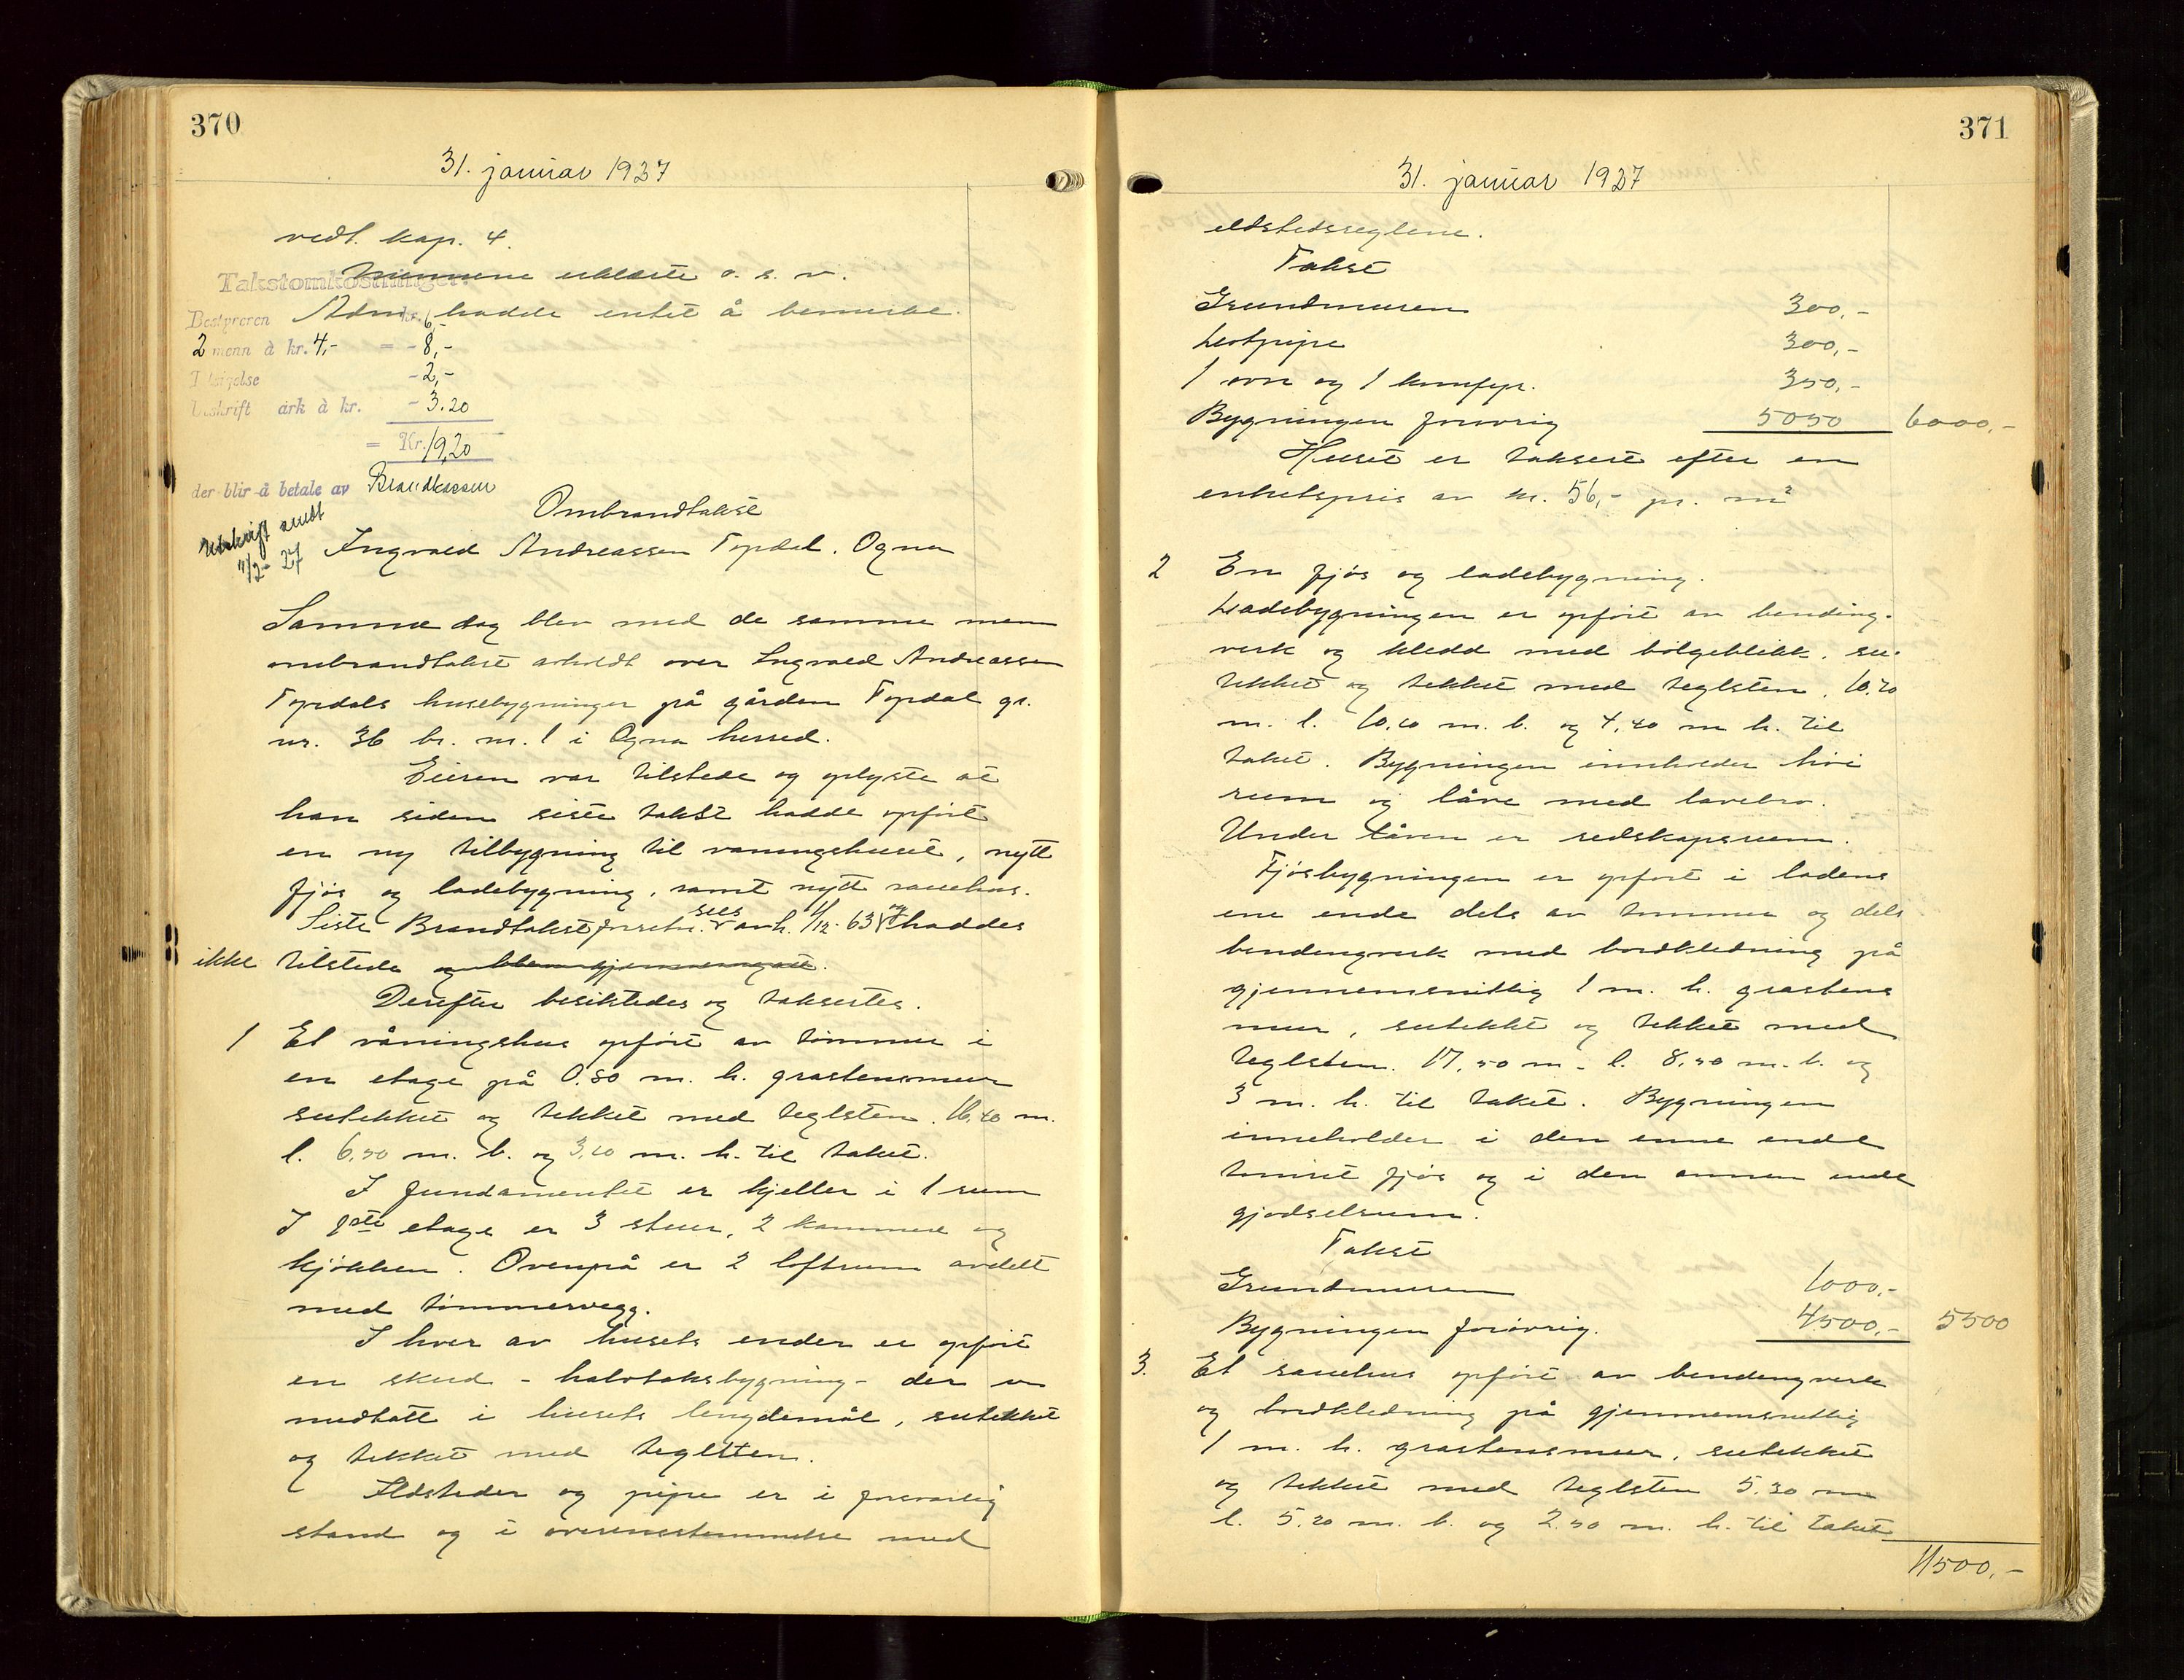 370
31. januar 1927
vedt. kap. 4.
Mennene erklærte o. s. v.
Adm. hadde intet å bemerke.
Takstomkostninger:
Bestyreren kr. 6,-
2 menn à kr. 4,- = - 8,-
Tilsigelse - 2,-
Utskrift ark à kr. - 3.20
= Kr. 19,20
der blir å betale av Brandkassen
Utskrift sendt
11/2- 27
Ombrandtakst
Ingvald Andreassen Topdal. Ogna
Samme dag blev med de samme menn
ombrandtakst avholdt over Ingvald Andreassen
Topdals husebygninger på gården Topdal gr.
nr. 36 br. nr. 1 i Ogna herred.
Eieren var tilstede og oplyste at
han siden siste takst hadde opført
en ny tilbygning til vaningshuset, nytt
fjøs og ladebygning, samt nytt sauehus.
Siste Brandtakstforretn. sees avh. 1/12-63 og haddes
ikke tilstede og blev gjennemgått.
Derefter besiktedes og takseredes.
1 Et våningshus opført av tømmer i
en etage på 0.80 m. h. grastensmur
sutekket og tekket med teglsten. 16,40 m.
l. 6,50 m. b. og 3,20 m. h. til taket.
I fundamentet er kjeller i 1 rum
I 1ste etage er 3 stuer, 2 kammere og
kjøkken. Ovenpå er 2 loftrum avdelt
med tømmervegg.
I hver av husets ender er opført
en skud - halvtaksbygning - der er
medtatt i husets lengdemål, sutekket
og tekket med teglsten.
Ildsteder og pipe er i forsvarlig
stand og i overensstemmelse med
371
31. januar 1927
ildstedsreglene.
Takst
Grundmuren 300,-
Lostpipe 300,-
1 ovn og 1 komfyr. 350,-
Bygningen forøvrig 5050 6000,-
Huset er taksert efter en
enhetspris av kr. 56,- pr. m²
2 En fjøs og ladebygning.
Ladebygningen er opført av bending-
verk og kledd med bølgeblikk, su-
tekket og tekket med teglsten. 10,20
m. l. 10,20 m. b. og 4,40 m h. til
taket. Bygningen inneholder høi
rum og låve med lavebro.
Under låven er redskapsrum.
Fjøsbygningen er opført i ladens
ene ende dels av tømmer og dels
bendingverk med bordkledning på
gjennemsnitlig 1 m. h. grastens
mur, sutekket og tekket med
teglsten. 17,50 m. l. 8,50 m. b. og
3 m. h. til taket. Bygningen
inneholder i den enne ende
tømret fjøs og i den annen ende
gjødselrum.
Takst
Grundmuren 1000,-
Bygningen forøvrig. 4500,- 5500
3. Et sauehus opført av bendingverk
og bordkledning på gjennemsnitlig
1 m. h. grastensmur, sutekket
og tekket med teglsten 5.30 m
l. 5.20 m. b. og 2.50 m. h. til taket
11500,-